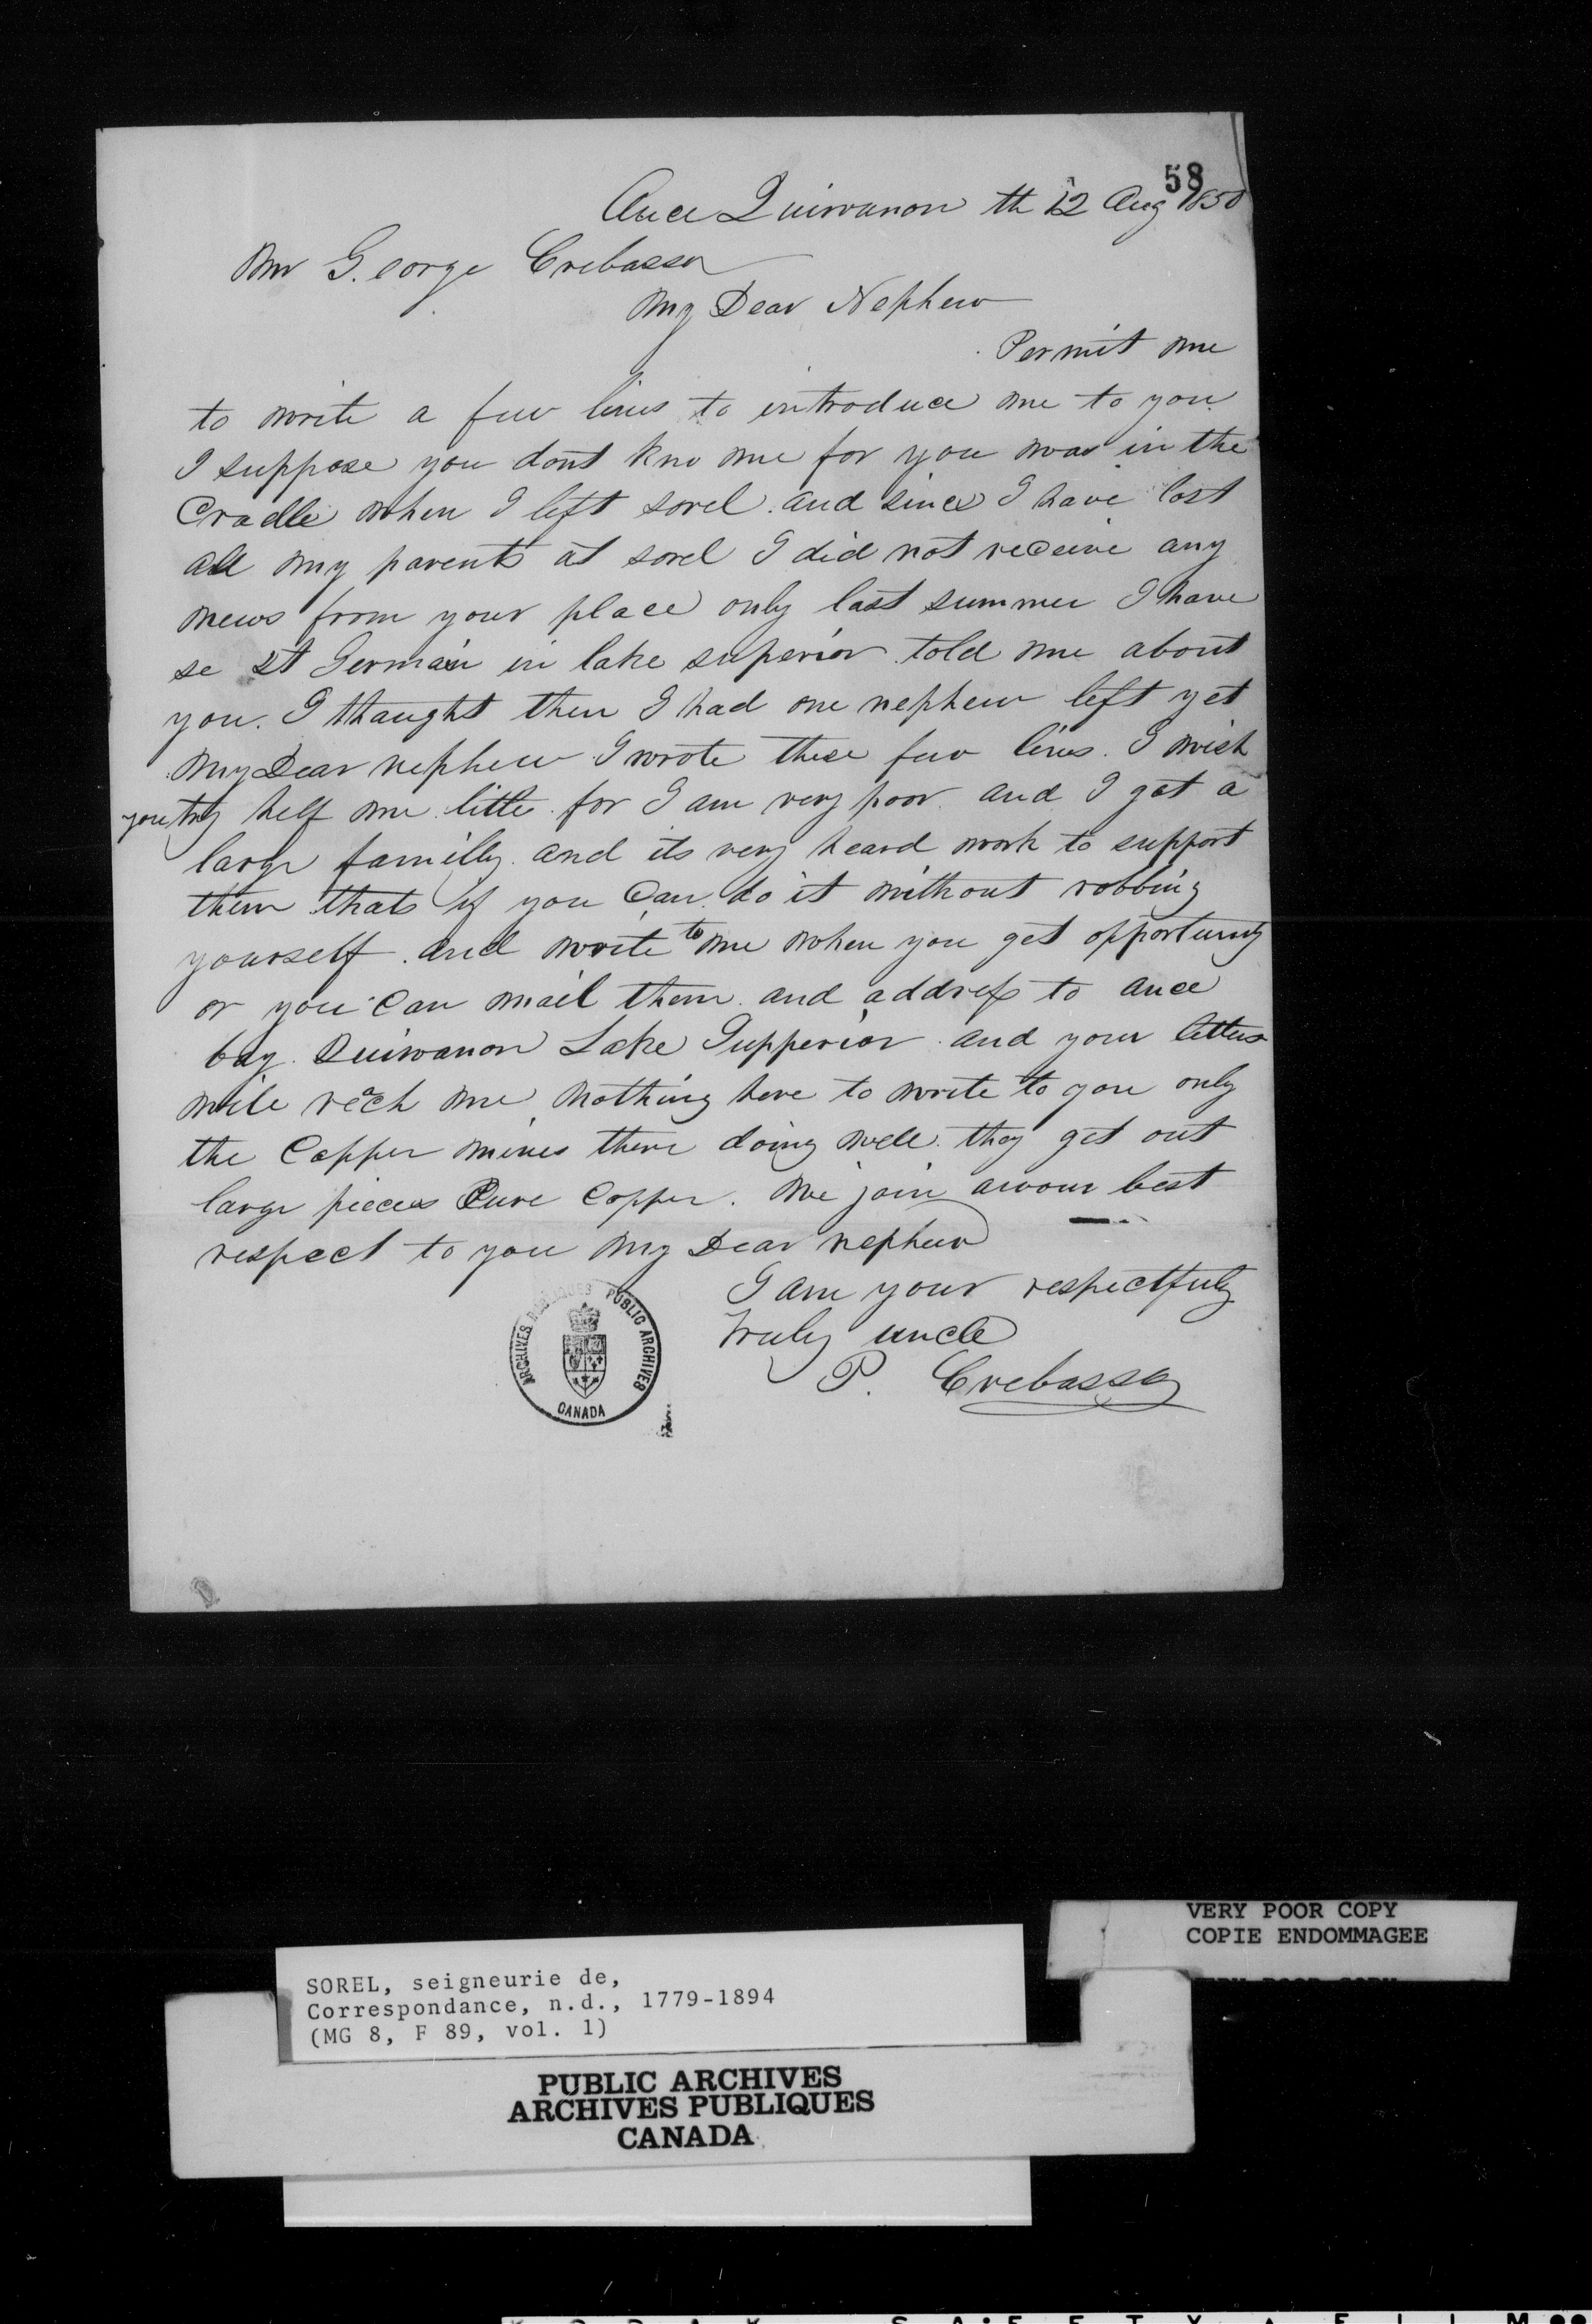 58
Ance Quiwanon th 12 Aug 1850
Mr George Crebassa
My Dear Nephew
Permit me
to write a few lines to introduce me to you
I suppose you dont kno me for you was in the
Cradle when I left sorel. and since I have lost
all my parents at sorel I did not receive any
news from your place only last summer I have
se st Germain in lake superior told me about
you. I thaught then I had one nephew left yet
My Dear nephew I wrote these few lines. I wish
you try helf me little for I am very poor and I got a
large familly. and its very heard work to support
them thats if you Can do it without robbing
yourself. and write to me when you get opportunity
or you Can mail them and address to ance
bay. Quiwanon Lake Supperior. and your letters
wile rech me nothing here to write to you only
the Copper mines there doing well they get out
large pieces Pure Copper. We join awour best
respect to you My Dear nephew
I am your respectfuly
truly uncle
P. Crebassa
ARCHIVES PUBLIQUES PUBLIC ARCHIVES
CANADA
VERY POOR COPY
COPIE ENDOMMAGEE
SOREL, seigneurie de,
Correspondance, n.d., 1779-1894
(MG 8, F 89, vol. 1)
PUBLIC ARCHIVES
ARCHIVES PUBLIQUES
CANADA